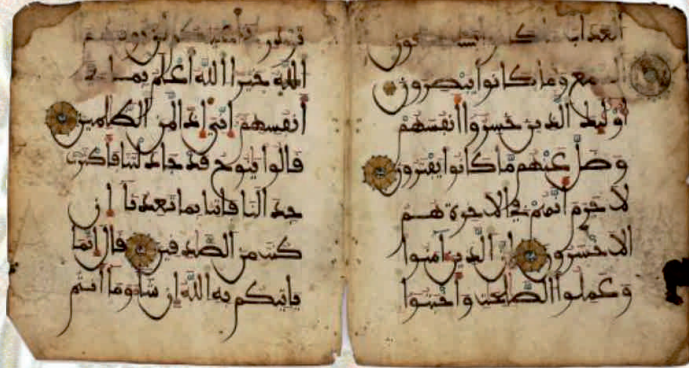 العذاب
السمع وما كانوا يبصرون
أوليك الذين خسروا أنفسهم
وضل عنهم ما كانوا يفترون
لا جرم أنهم في الاخرة هم
الاخسرون إن الذين آمنوا
وعملوا الصلحت وأخبتوا
تزدري أعينكم لن يوتيهم
الله خيرا الله أعلم بما في
أنفسهم إني إذا لمن الظلمين
قالوا ينوح قد جادلتنا فأكثرت
جدالنا فاتنا بما تعدنا إن
كنت من الصدقين قال إنما
ياتيكم به الله إن شا وما أنتم